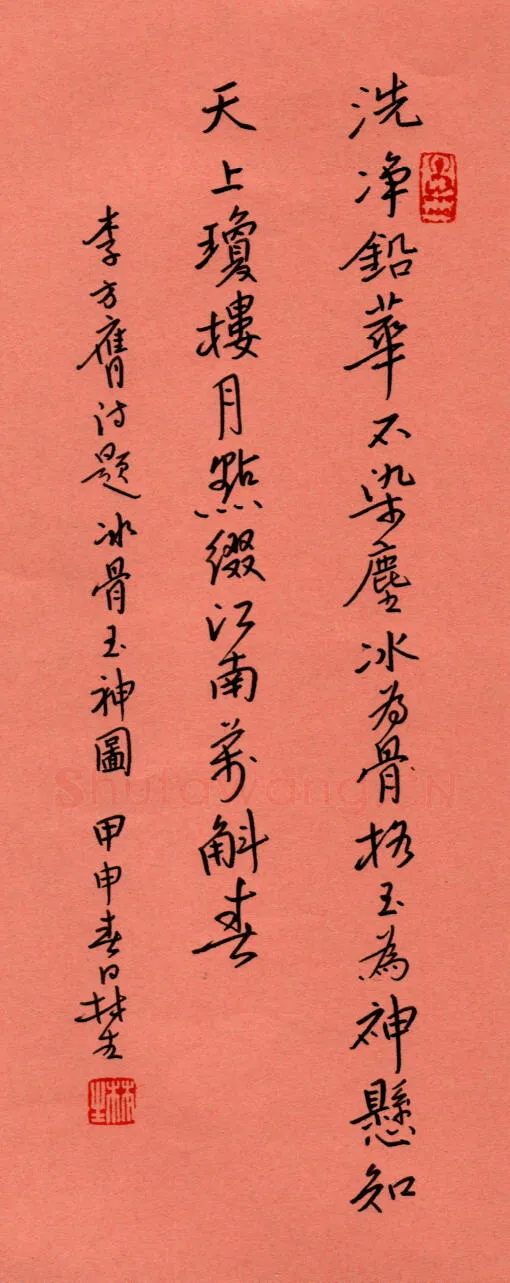 洗净鉛華不染塵冰为骨格玉為神懸知
天上瓊樓月點綴江南萬斛春
李方膺诗题冰骨玉神圖 甲申春日林生
Shufawang.CN